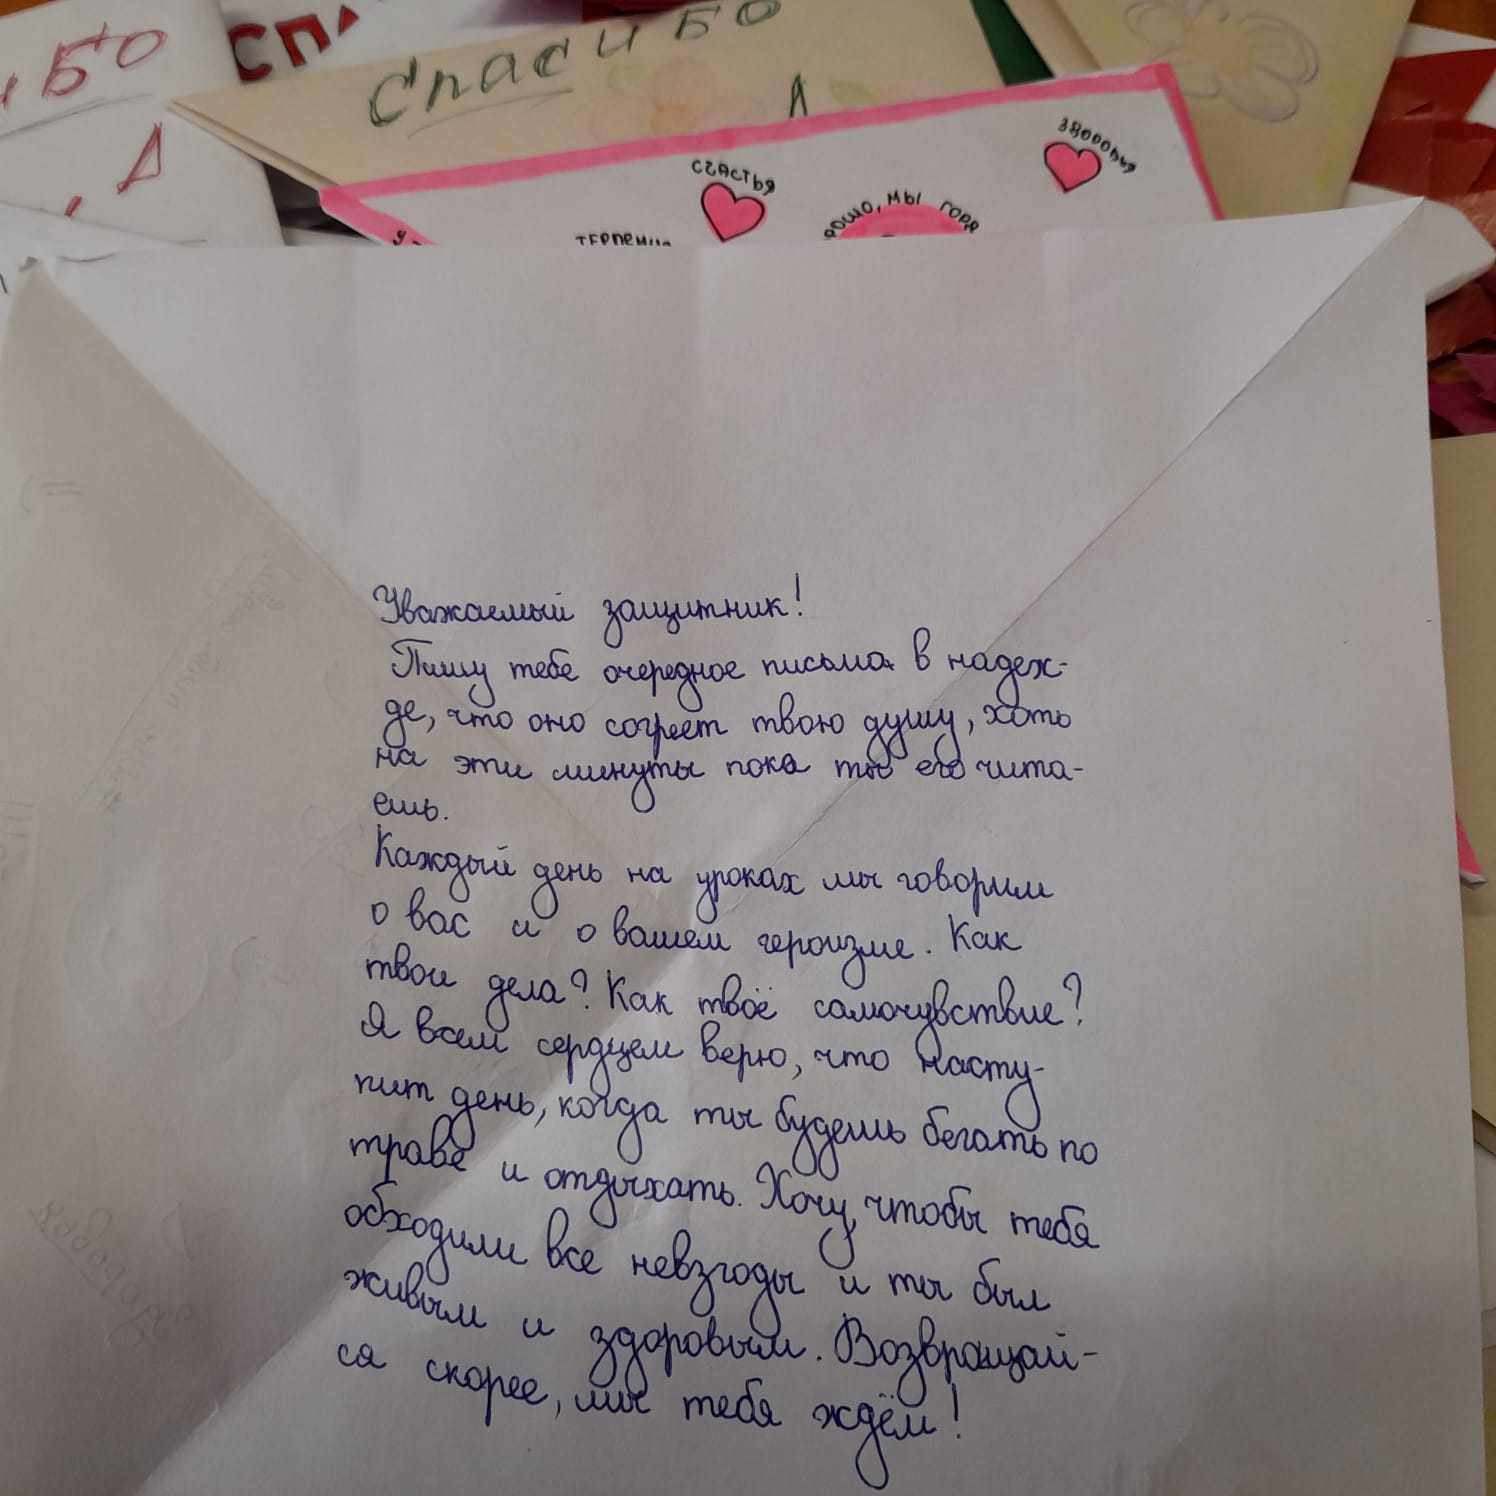 СПА
Спасибо
счастья
здоровья
мы горд
Уважаемый защитник!
Пишу тебе очередное письмо в надеж-
де, что оно согреет твою душу, хоть
на эти минуты пока ты его чита-
ешь.
Каждый день на уроках мы говорим
о вас и о вашем героизме. Как
твои дела? Как твоё самочувствие?
Я всем сердцем верю, что насту-
пит день, когда ты будешь бегать по
траве и отдыхать. Хочу, чтобы тебя
обходили все невзгоды и ты был
живым и здоровым. Возвращай-
ся скорее, мы тебя ждём!